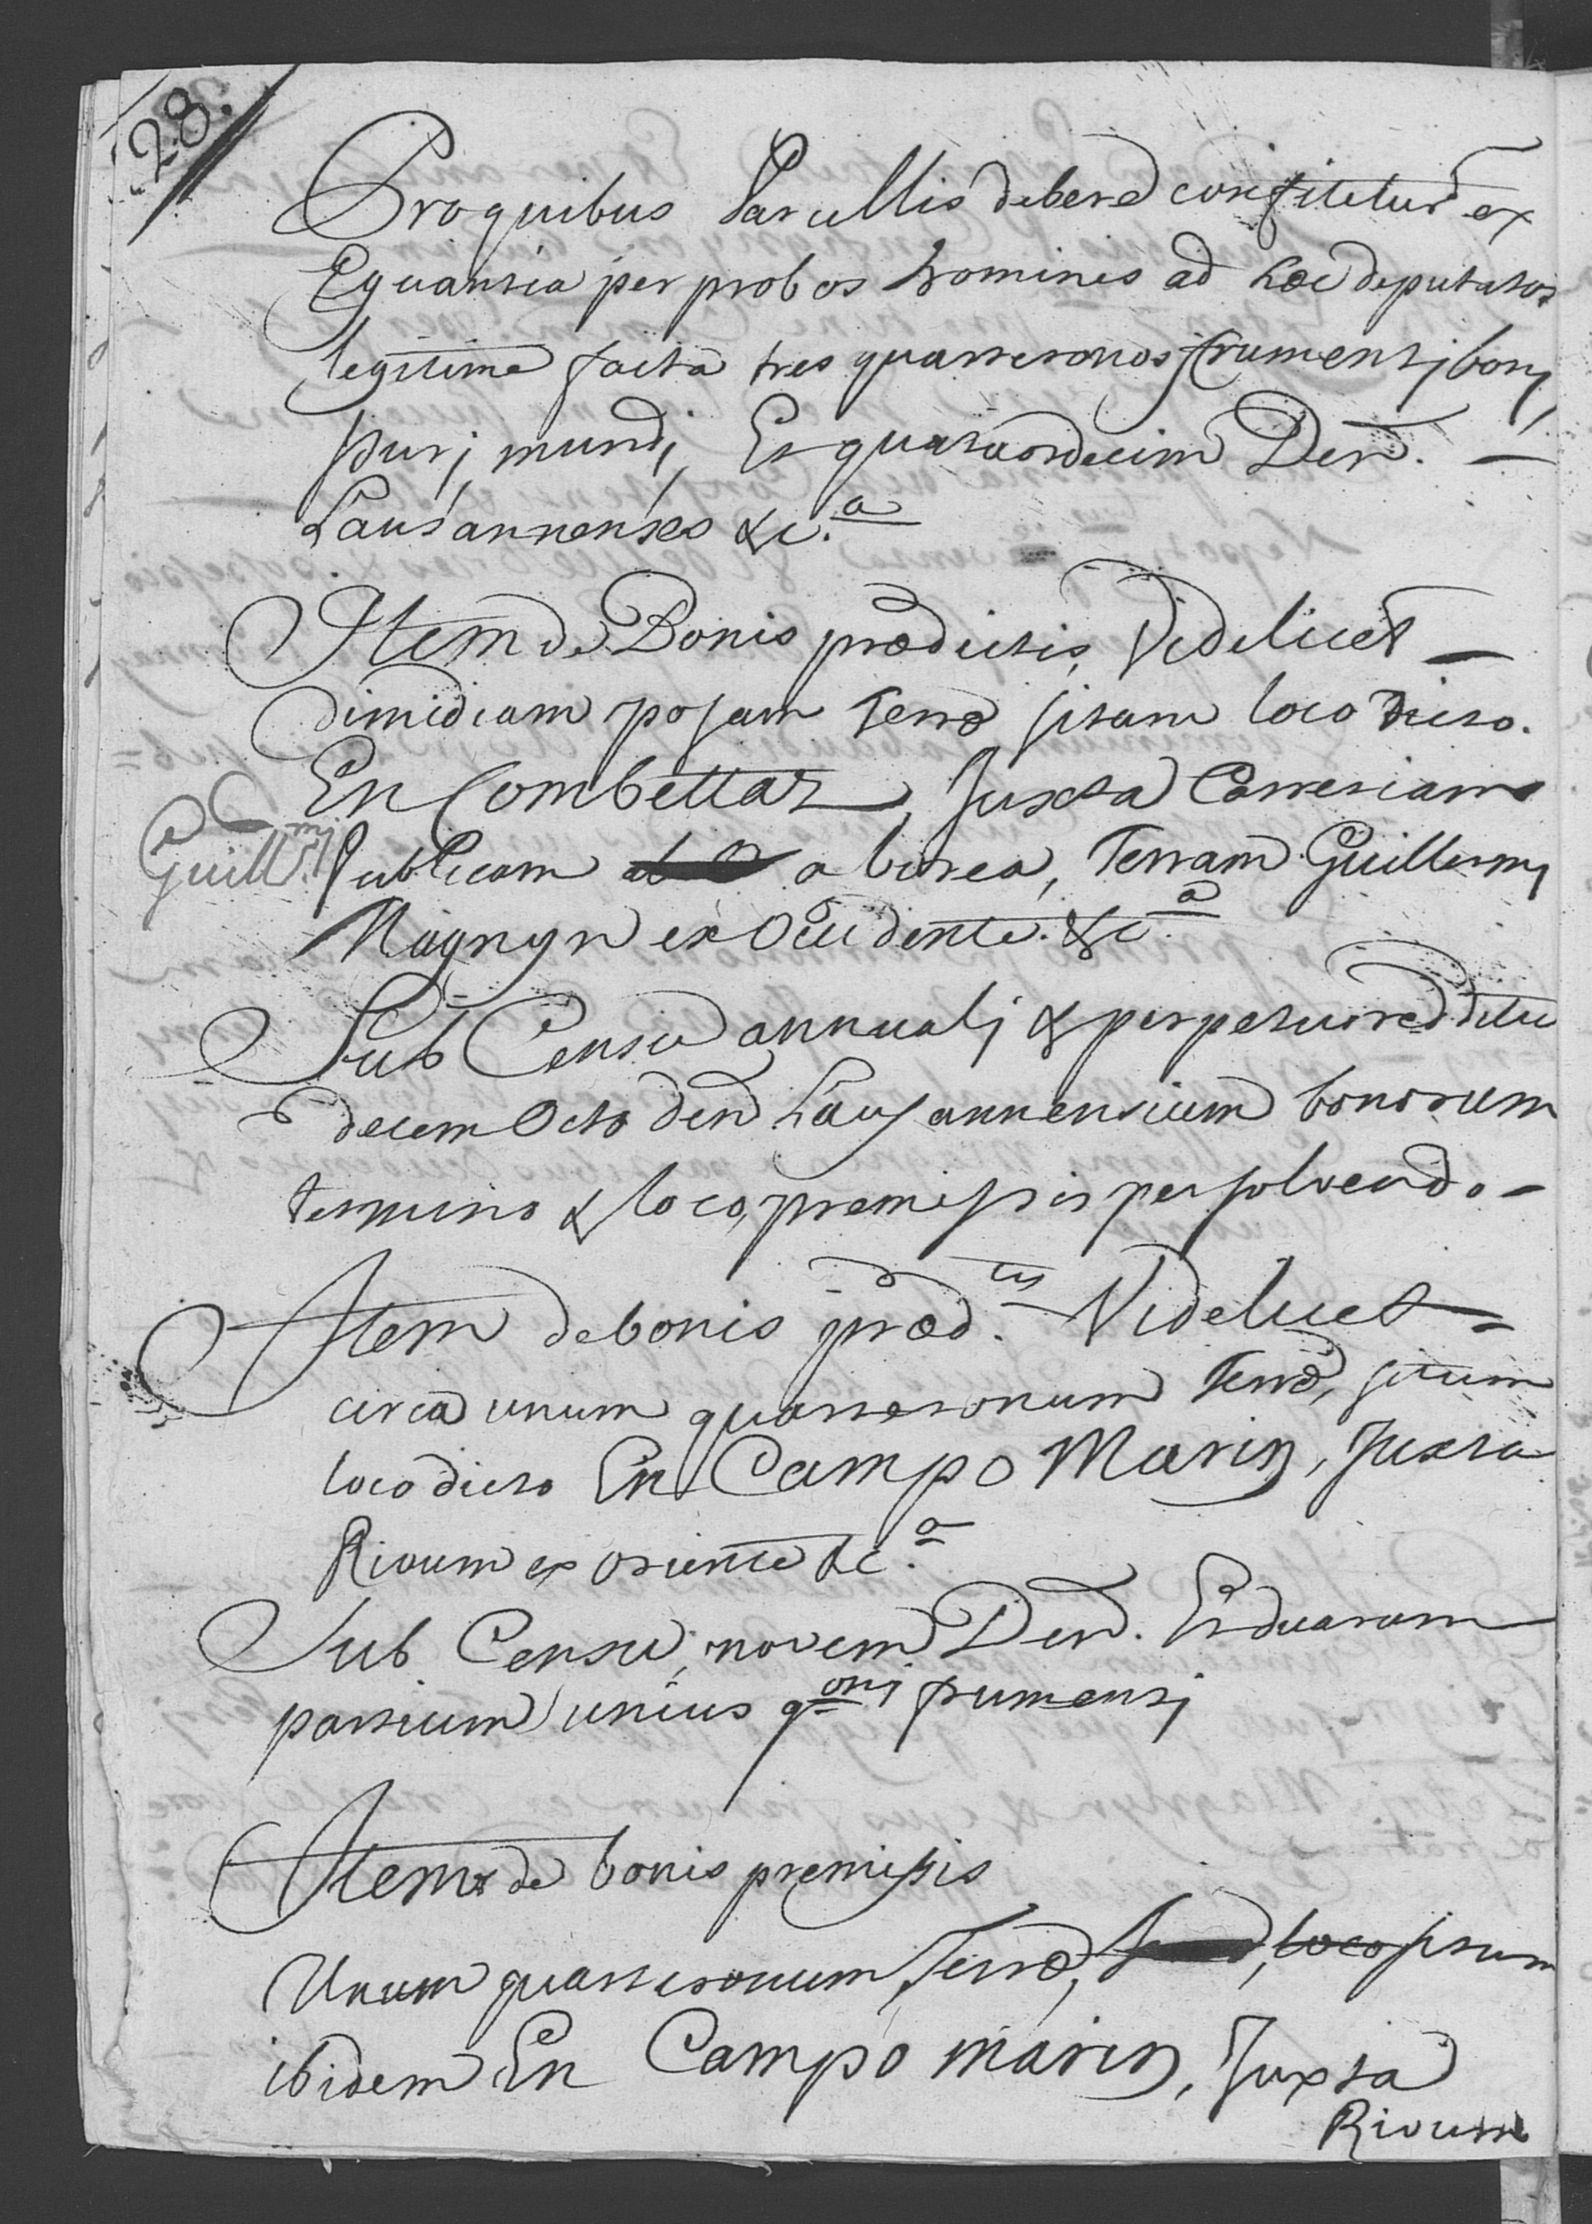 28.
Pro quibus Parcellis debere confitetur ex
Equantia per probos homines ad hoc deputatos
legitime facta tres quarteronos frumentj bonj,
purj mundj, Et quatuordecim Den. —
Lausannenses &c.a
Item de Bonis prædictis, Videlicet —
dimidiam posam terræ sitam loco dicto.
En Combettaz, Juxta Carreriam
Guill.mj Publicam a borea, Terram Guillermj
Magnyn ex Occidente. &c.a
Sub Censu annualj & perpetuo redditu
decem Octo den Lausannensium bonorum
termino & loco, premissis persolvendo —
Item de bonis præd.tis Videlicet —
circa unum quarteronum terræ, situm
loco dicto En Campo Marin, Juxta
Rivum ex oriente &c.a
Sub Censu, novem Den. Et duarum
partium unius q.onj frumentj
Item de bonis premissis
Unum quarteronum Terræ, loco situm
ibidem En Campo marin, Juxta
Rivum